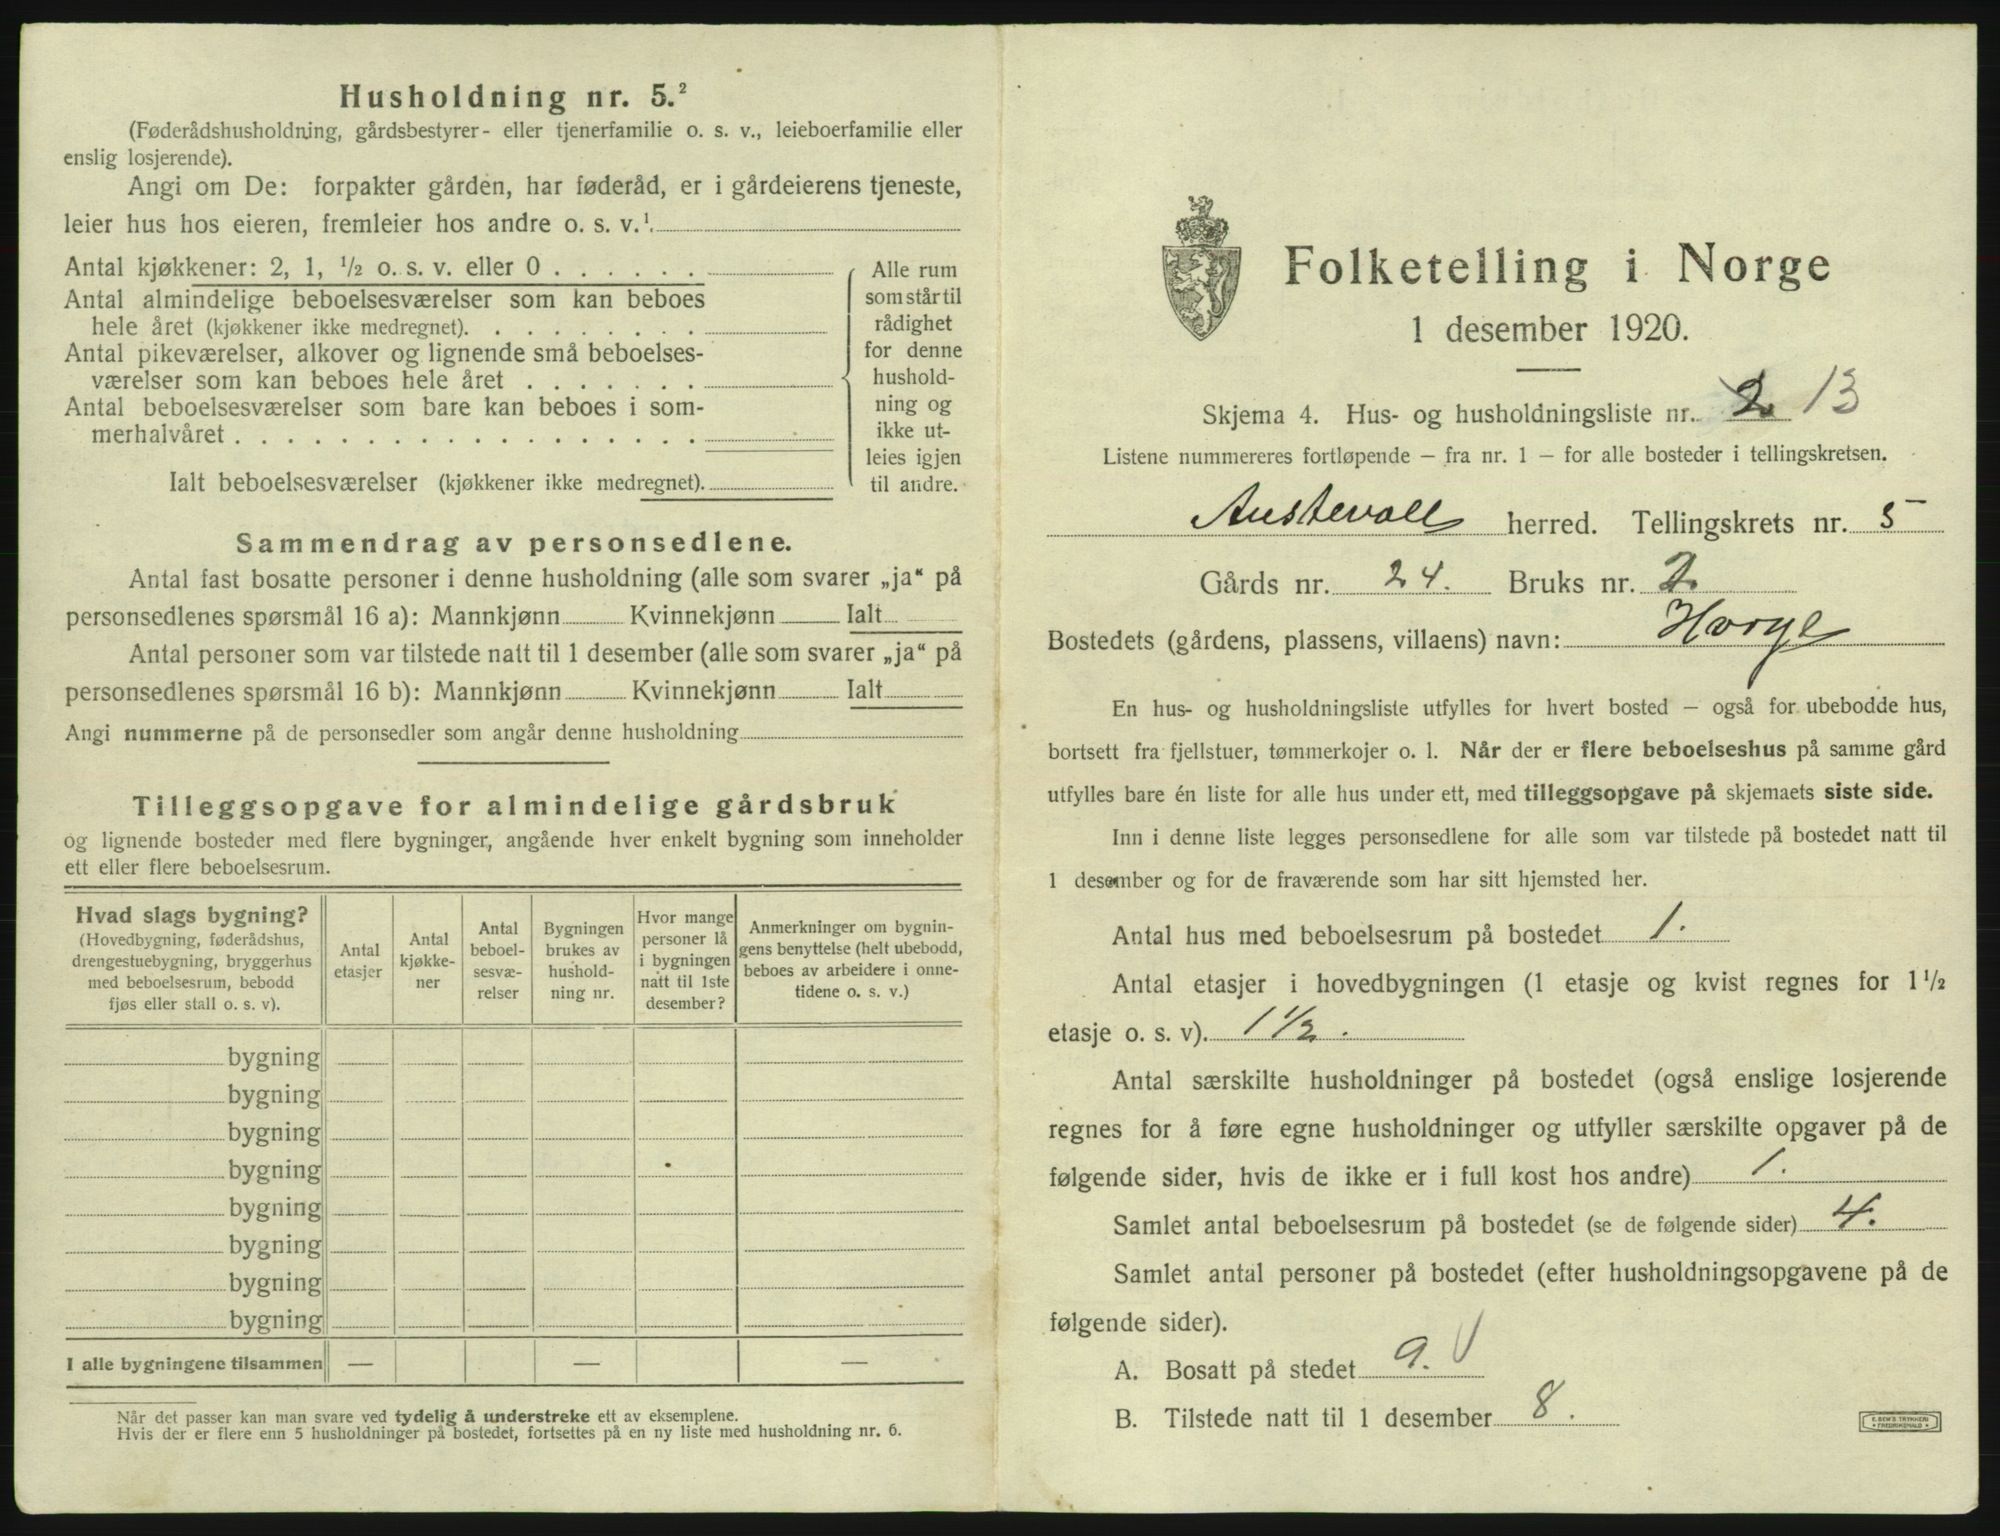 Husholdning nr. 5.²
(Føderådshusholdning, gårdsbestyrer- eller tjenerfamilie o. s. v., leieboerfamilie eller
enslig losjerende).
Angi om De: forpakter gården, har føderåd, er i gårdeierens tjeneste,
leier hus hos eieren, fremleier hos andre o. s. v.¹.
Antal kjøkkener: 2, 1, ½ o. s. v. eller 0 . . . . . .
Antal almindelige beboelsesværelser som kan beboes
hele året (kjøkkener ikke medregnet). . . . . . . . .
Antal pikeværelser, alkover og lignende små beboelses-
værelser som kan beboes hele året . . . . . . .
Antal beboelsesværelser som bare kan beboes i som-
merhalvåret . . . . . . . . . . . . . . . . . .
Ialt beboelsesværelser (kjøkkener ikke medregnet).
Alle rum
som står til
rådighet
for denne
hushold-
ning og
ikke ut-
leies igjen
til andre.
Sammendrag av personsedlene.
Antal fast bosatte personer i denne husholdning (alle som svarer „ja“ på
personsedlenes spørsmål 16 a): Mannkjønn Kvinnekjønn Ialt
Antal personer som var tilstede natt til 1 desember (alle som svarer „ja“ på
personsedlenes spørsmål 16 b): Mannkjønn Kvinnekjønn Ialt
Angi nummerne på de personsedler som angår denne husholdning
Tilleggsopgave for almindelige gårdsbruk
og lignende bosteder med flere bygninger, angående hver enkelt bygning som inneholder
ett eller flere beboelsesrum.
Hvad slags bygning?
(Hovedbygning, føderådshus,
drengestuebygning, bryggerhus
med beboelsesrum, bebodd
fjøs eller stall o. s. v).
Antal
etasjer
Antal
kjøkke-
ner
Antal
beboel-
sesvæ-
relser
Bygningen
brukes av
hushold-
ning nr.
Hvor mange
personer lå
i bygningen
natt til 1ste
desember?
Anmerkninger om bygnin-
gens benyttelse (helt ubebodd,
beboes av arbeidere i onne-
tidene o. s. v.)
bygning
bygning
bygning
bygning
bygning
bygning
bygning
bygning
I alle bygningene tilsammen — — —
Når det passer kan man svare ved tydelig å understreke ett av eksemplene.
Hvis der er flere enn 5 husholdninger på bostedet, fortsettes på en ny liste med husholdning nr. 6.
Folketelling i Norge
1 desember 1920.
Skjema 4. Hus- og husholdningsliste nr. 2 13
Listene nummereres fortløpende — fra nr. 1 — for alle bosteder i tellingskretsen.
Austevoll herred. Tellingskrets nr. 5
Gårds nr. 24. Bruks nr. 2
Bostedets (gårdens, plassens, villaens) navn: Horge
En hus- og husholdningsliste utfylles for hvert bosted — også for ubebodde hus,
bortsett fra fjellstuer, tømmerkojer o. l. Når der er flere beboelseshus på samme gård
utfylles bare én liste for alle hus under ett, med tilleggsopgave på skjemaets siste side.
Inn i denne liste legges personsedlene for alle som var tilstede på bostedet natt til
1 desember og for de fraværende som har sitt hjemsted her.
Antal hus med beboelsesrum på bostedet 1.
Antal etasjer i hovedbygningen (1 etasje og kvist regnes for 1½
etasje o. s. v). 1 ½.
Antal særskilte husholdninger på bostedet (også enslige losjerende
regnes for å føre egne husholdninger og utfyller særskilte opgaver på de
følgende sider, hvis de ikke er i full kost hos andre) 1.
Samlet antal beboelsesrum på bostedet (se de følgende sider) 4.
Samlet antal personer på bostedet (efter husholdningsopgavene på de
følgende sider).
A. Bosatt på stedet 9. V
B. Tilstede natt til 1 desember 8.
E. SEM'S TRYKKERI
FREDRIKSHALD